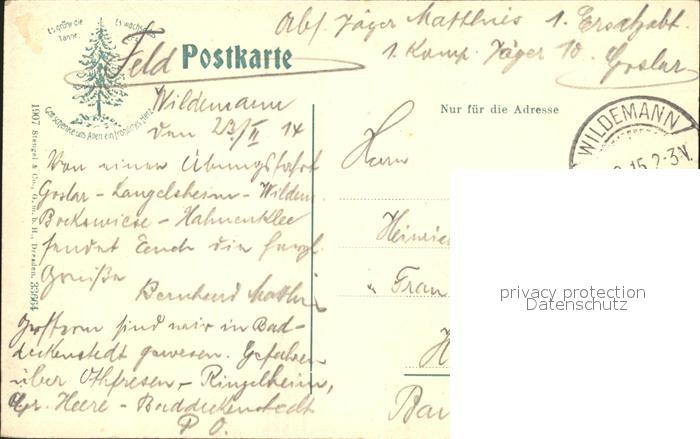 Es grüne die
Tanne,
Es wachse
Erz
Gott schenke uns Allen ein fröhliches Herz
Feld Postkarte
Abs. Jäger Matthies 1. Ersatzabt.
1. Komp. Jäger 10. Goslar
Wildemann
den 23/II 14
Nur für die Adresse
WILDEMANN
15.2-3.V.
Von einer Übungsfahrt
Goslar - Langelsheim - Wildem.
Bockswiese - Hahnenklee
sendet Euch die herzl.
Grüße
Bernhard
Gestern sind wir in Bad-
deckenstedt gewesen. Gefahren
über Othfresen - Ringelheim,
Gr. Heere - Baddeckenstedt
Herrn
Heinrich
u Frau
H
Ba
1907 Stengel & Co., G. m. b. H., Dresden. 33564
privacy protection
Datenschutz